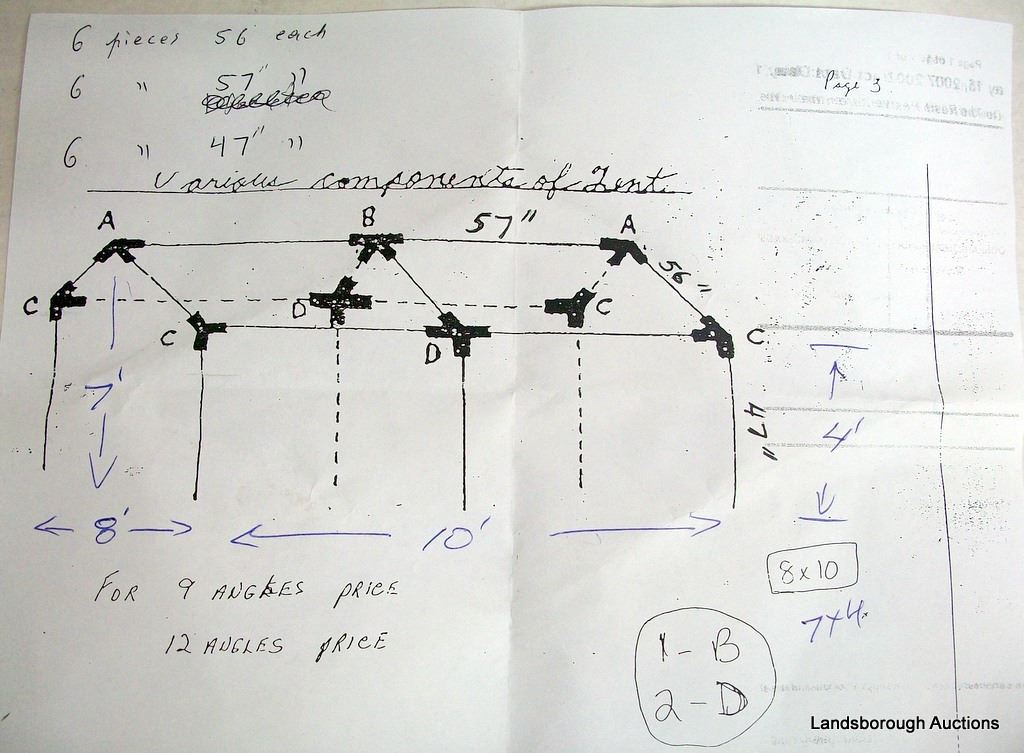 6 pieces 56 each
6 " 57" "
6 " 47" "
Page 3
Various components of Tent.
A B 57" A
56"
C D C
C D C
7'
47"
4'
8' 10'
8x10
FOR 9 ANGLES PRICE
7x4
12 ANGLES PRICE
1-B
2-D
Landsborough Auctions